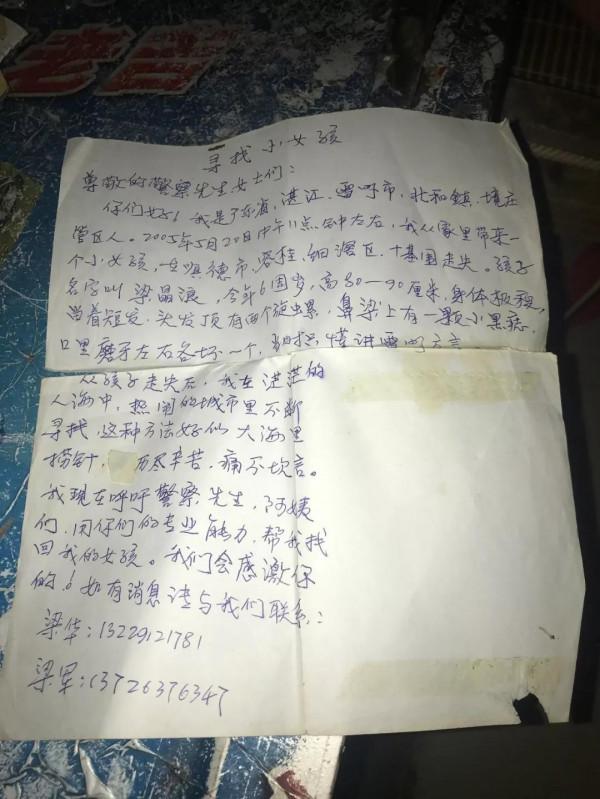 寻找小女孩
尊敬的警察先生女士们：
你们好！我是广东省，湛江，雷呼市，北和鎮，境庄
管区人。2005年5月20日中午11点钟左右，我从家里带来一
个小女孩，在順德市，容桂，细滘区，十基围走失。孩子
名字叫梁晶浪，今年6周岁，高80—90厘米，身体极瘦，
当着短发，头发顶有两个旋虫累，鼻梁上有一颗小黑痣，
口里磨牙左右各坏一个，懂讲雷呼方言
从孩子走失后，我在茫茫的
人海中，热闹的城市里不断
寻找，这种方法好似大海里
捞针，历尽辛苦，痛不坎言。
我现在呼呼警察先生，阿姨
们，用你们的专业能力，帮我找
回我的女孩。我们会感激你
的！如有消息请与我们联系：
梁华：13229121781
梁军：13726376347